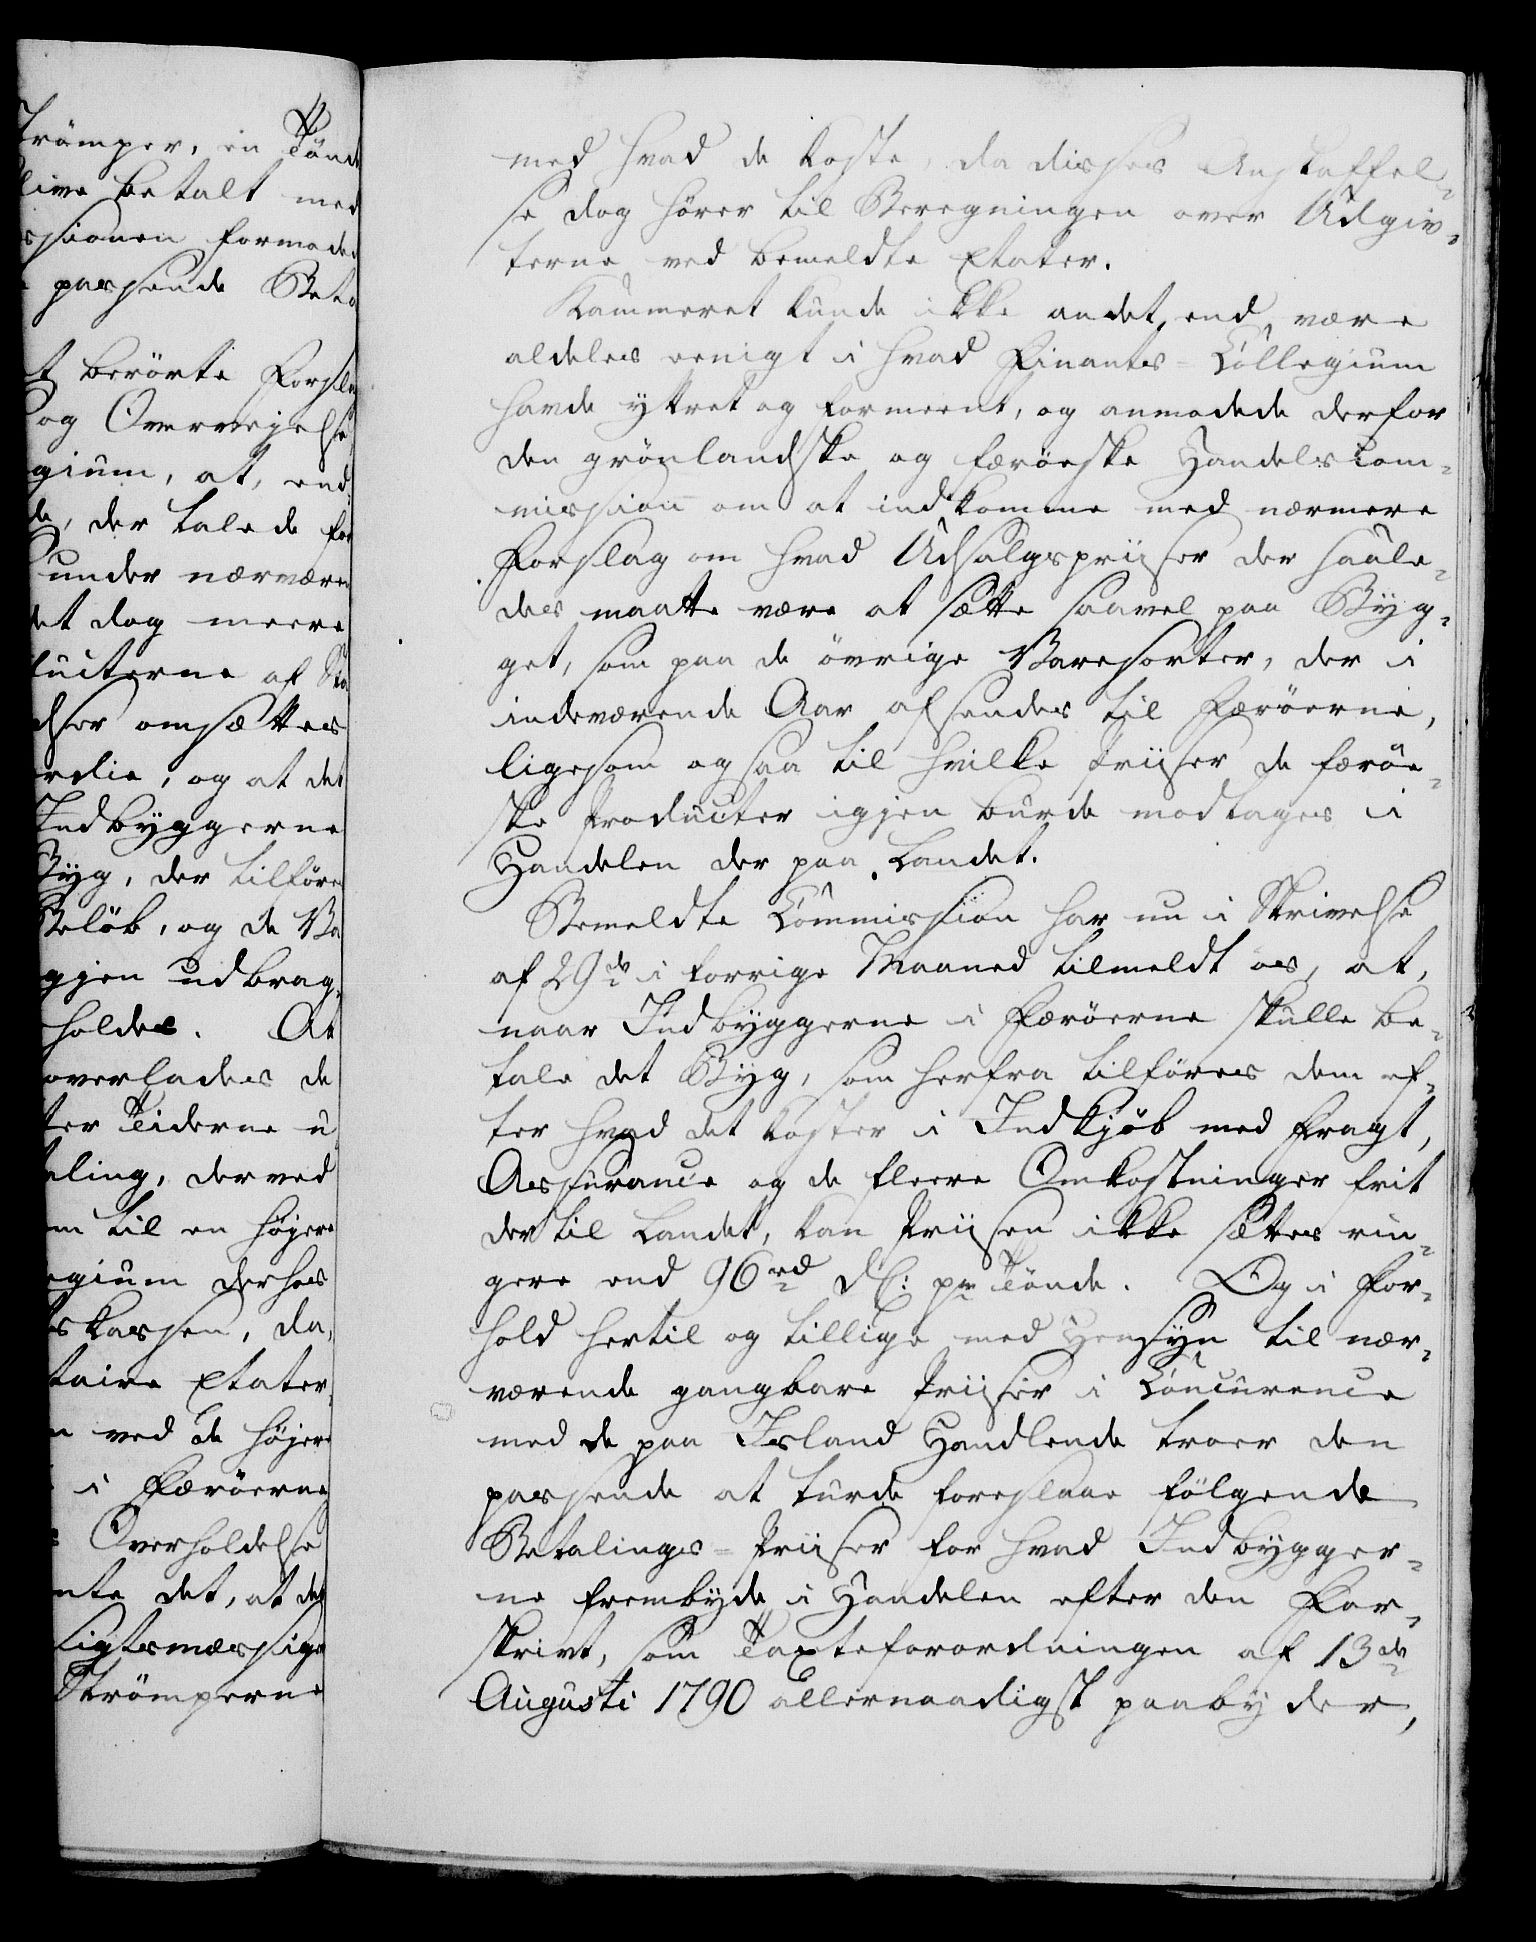 Trömper, en Tönde
live betalt med
ssionen formoder
passende Beta
t berörte Forsla
og Overvejelse
gium, at, end
de, der talede for
under nærvære
det dog meere
lucterne af
dser omsættes
rdie, og at det
Indbyggerne
Byg, der tilföre
Belöb, og de Va
gjen udbrag¬
holdes. At
overlades de
ter Tiderne u
ling, derved
m til en højere
egium derhos
skassen, da,
taire Etater
n ved de højere
i Færöerne
Overholdelse
nte det, at det
sigtsmæssige
Strömperne
med hvad de koste, da disses Anskaffel¬
se dog hører til Beregningen over Udgiv¬
terne ved bemeldte Etater.
Kammeret kunde ikke andet, end, være
aldeles eenigt i hvad Finants-Collegium
havde yttret og formeent, og anmodede derfor
den grönlandske og færöeske Handelscom¬
mission om at indkomme med nærmere
Forslag om hvad Udsalgspriiser der saale¬
des maatte være at sætte saavel paa Byg¬
get, som paa de övrige Varesorter, der i
indeværende Aar afsendes til Færöerne,
ligesom ogsaa til hvilke Priiser de færöe¬
ske Producter igjen burde modtages i
Handelen der paa Landet.
Bemeldte Commission har nu i Skrivelse
af 29de i forrige Maaned tilmeldt os, at,
naar Indbyggerne i Færöerne skulle be¬
tale det Byg, som herfra tilföres dem ef¬
ter hvad det koster i Indkjöb med Fragt,
Assurance og de fleere Omkostninger frit
der til Landet, kan Priisen ikke sættes rin¬
gere end 96 rd DC: pr Tönde. Og i For¬
hold hertil og tillige med Hensyn til nær¬
værende gangbare Priiser i Concurence
med de paa Island Handlende troer den
passende at turde foreslaae fölgende
Betalings-Priiser for hvad Indbygger¬
ne frembyde i Handelen efter den For¬
skrivt, som Taxteforordningen af 13de
Augusti 1790 allernaadigst paabyder,